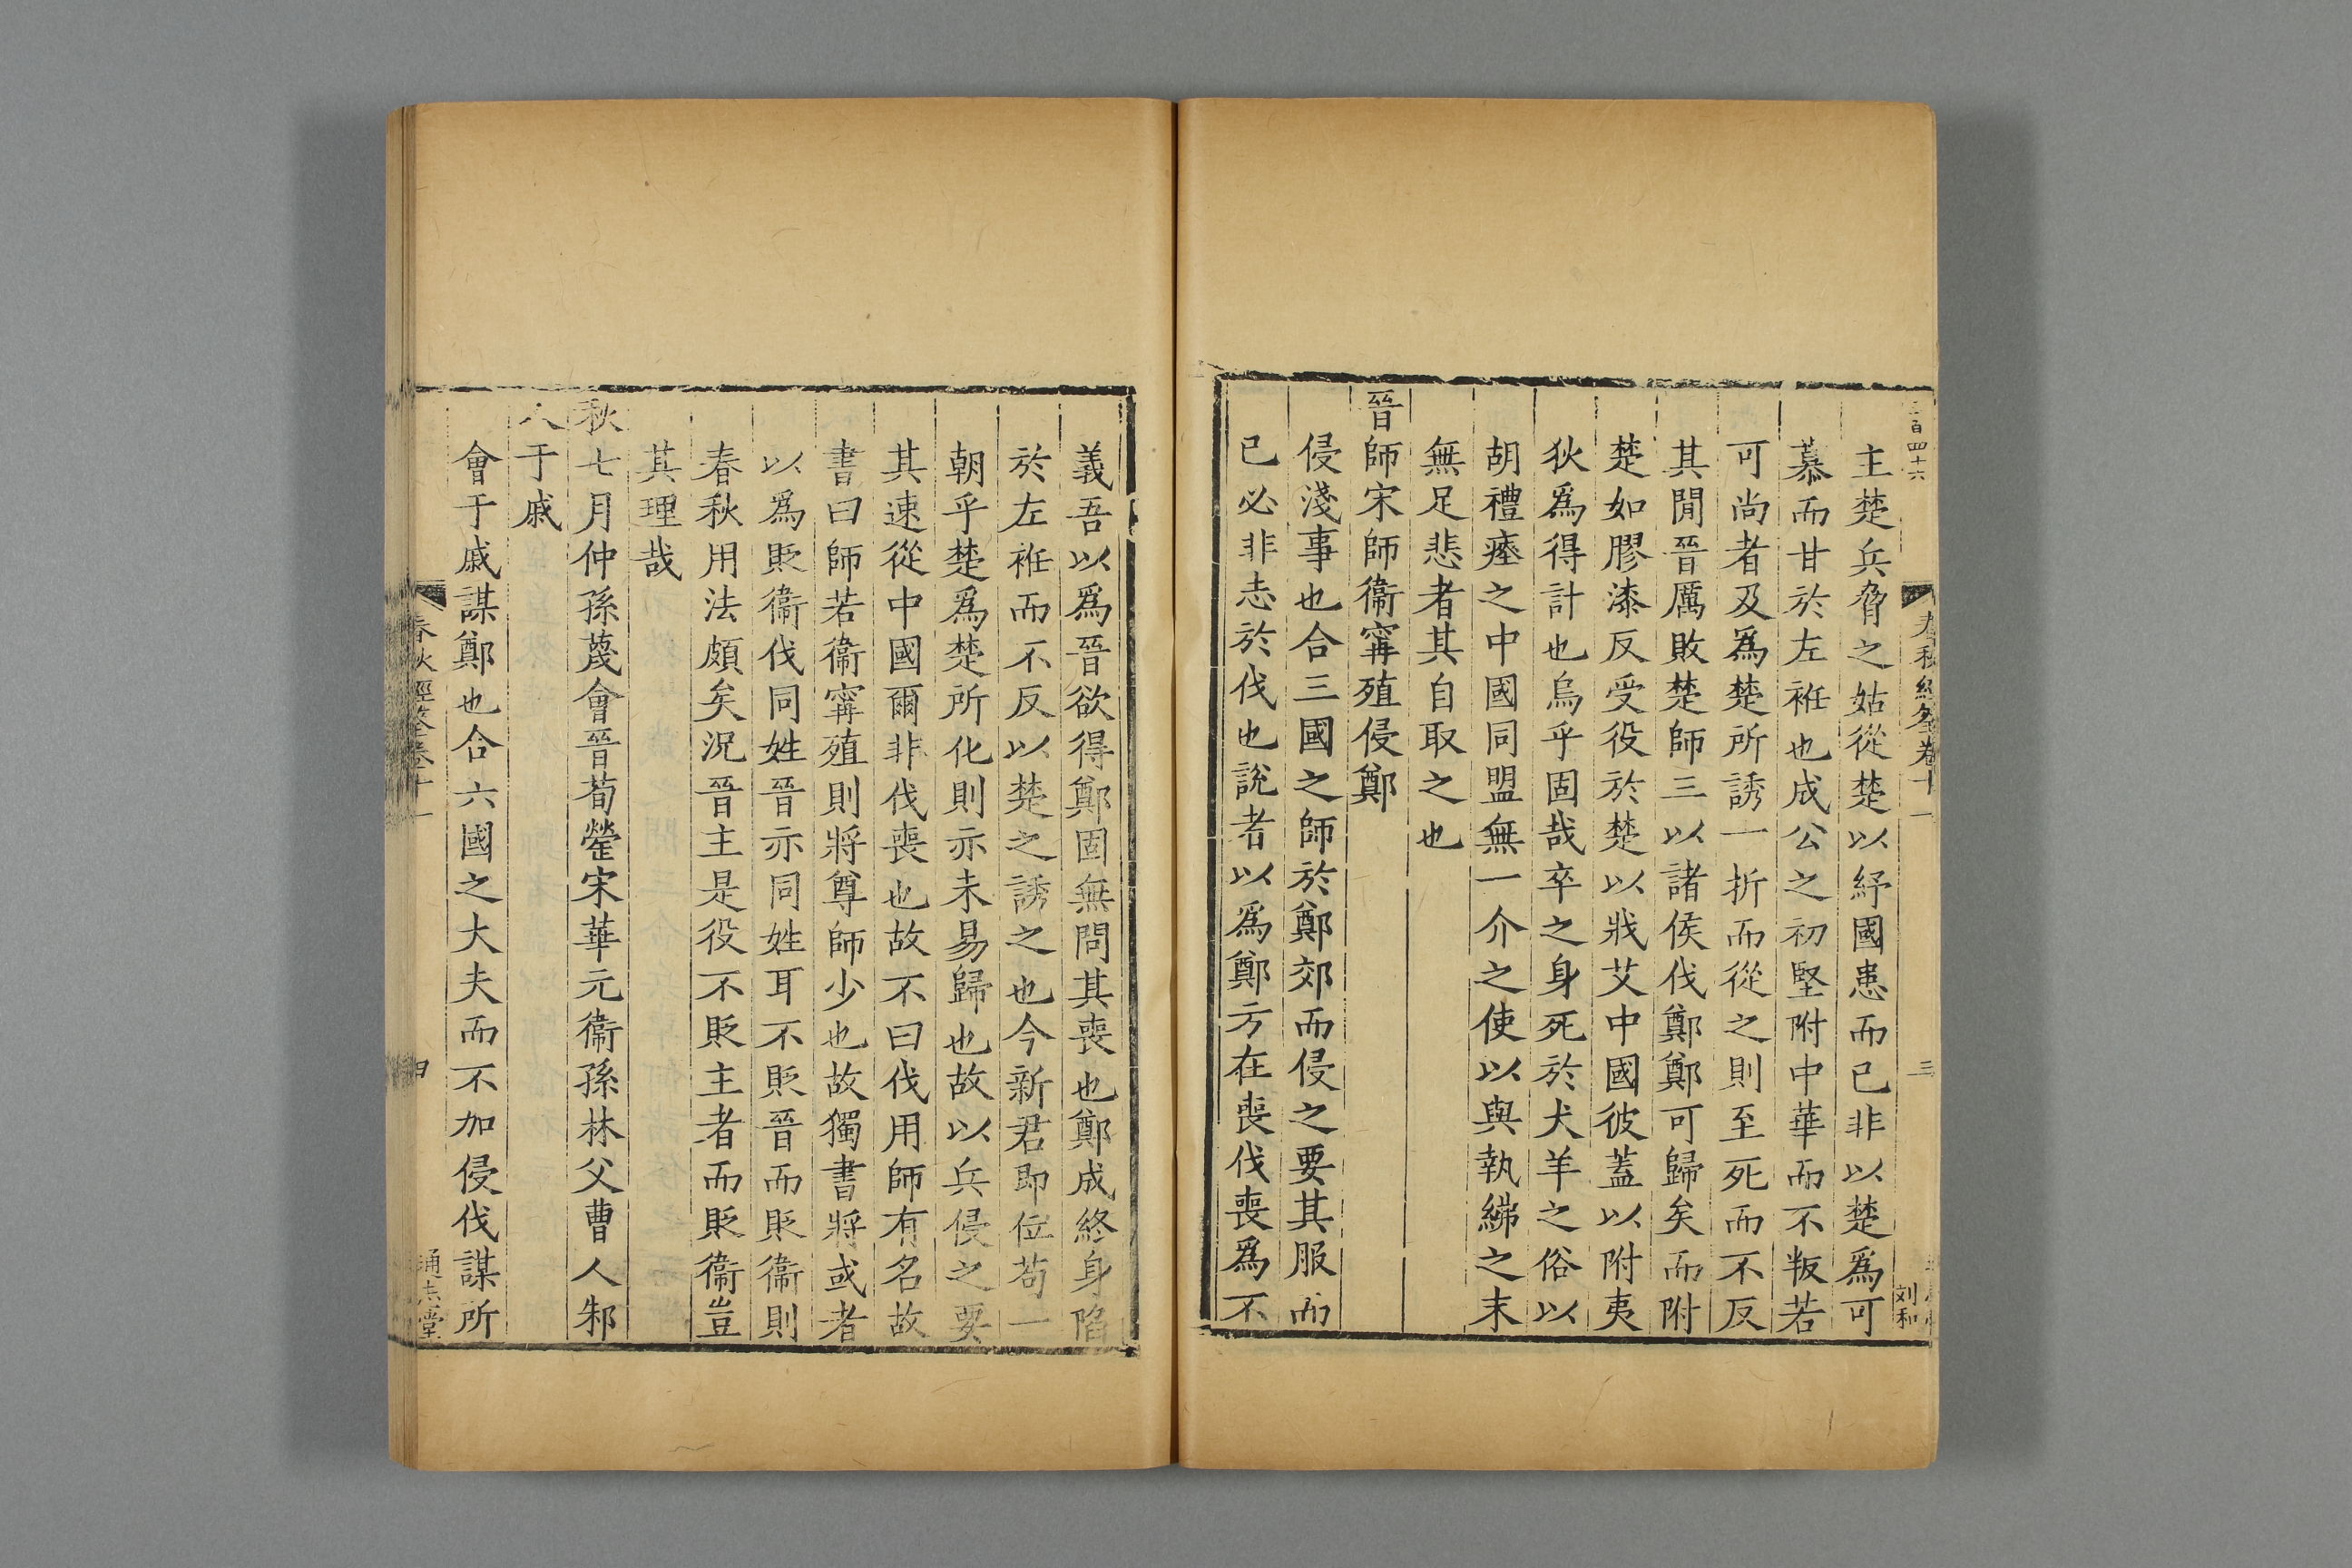 三百四十六
春秋經筌卷十一
三
刘和
主楚兵脅之姑從楚以紓國患而已非以楚爲可
慕而甘於左袵也成公之初堅附中華而不叛若
可尚者及爲楚所誘一折而從之則至死而不反
其閒晉厲敗楚師三以諸侯伐鄭鄭可歸矣而附
楚如膠漆反受役於楚以戕艾中國彼蓋以附夷
狄爲得計也烏乎固哉卒之身死於犬羊之俗以
胡禮瘞之中國同盟無一介之使以與執紼之末
無足悲者其自取之也
晉師宋師衞甯殖侵鄭
侵淺事也合三國之師於鄭郊而侵之要其服而
已必非志於伐也說者以爲鄭方在喪伐喪爲不
義吾以爲晉欲得鄭固無問其喪也鄭成終身陷
於左袵而不反以楚之誘之也今新君即位苟一
朝乎楚爲楚所化則亦未易歸也故以兵侵之要
其速從中國爾非伐喪也故不曰伐用師有名故
書曰師若衞甯殖則將尊師少也故獨書將或者
以爲貶衞伐同姓晉亦同姓耳不貶晉而貶衞則
春秋用法頗矣況晉主是役不貶主者而貶衞豈
其理哉
秋七月仲孫蔑會晉荀罃宋華元衞孫林父曹人邾
人于戚
會于戚謀鄭也合六國之大夫而不加侵伐謀所
春秋經筌卷十一
四
通志堂